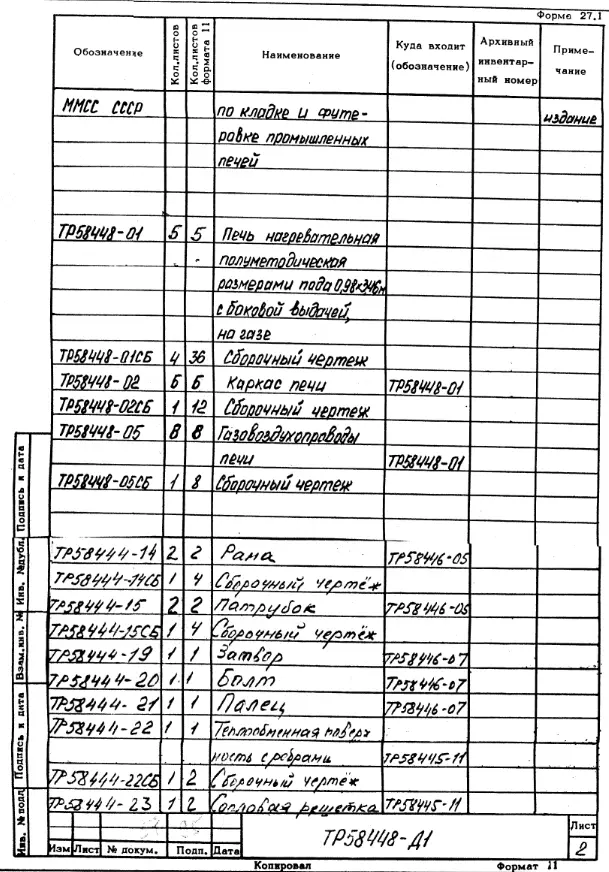 Форма 27.1
Обозначение Кол.листов Кол.листов формата 11 Наименование Куда входит (обозначение) Архивный инвентарный номер Примечание
ММСС СССР по кладке и футе- издание
ровке промышленных
печей
ТР58448-01 5 5 Печь нагревательная
полуметодическая
размерами пода 0,98х3,46м
с боковой выдачей,
на газе
ТР58448-01СБ 4 36 Сборочный чертеж
ТР58448-02 Б Б Каркас печи ТР58448-01
ТР58448-02СБ 1 12 Сборочный чертеж
ТР58448-05 8 8 Газовоздухопроводы
печи ТР58448-01
ТР58448-05СБ 1 8 Сборочный чертеж
ТР58444-14 2 2 Рама ТР58446-05
ТР58444-14СБ 1 4 Сборочный чертёж
ТР58444-15 2 2 Патрубок ТР58446-05
ТР58444-15СБ 1 4 Сборочный чертёж
ТР58444-19 1 1 Затвор ТР58446-07
ТР58444-20 1 1 Болт ТР58446-07
ТР58444-21 1 1 Палец ТР58446-07
ТР58444-22 1 1 Теплобменная поверх
ность с ребрами ТР58445-11
ТР58444-22СБ 1 2 Сборочный чертёж
ТР58444-23 1 2 решетка ТР58445-11
Подпись и дата
Инв. №дубл.
Взам.инв. №
Подпись и дата
Инв. № подл
Изм Лист № докум. Подп. Дата
ТР58448-Д1
Лист
2
Копировал Формат 11